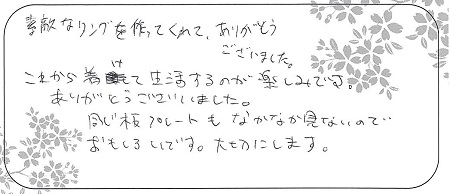 素敵なリングを作ってくれて、ありがとう
ございました。
これから着けて生活するのが楽しみです。
ありがとうございいました。
同じ板プレートもなかなか見ないので
おもしろいです。大切にします。